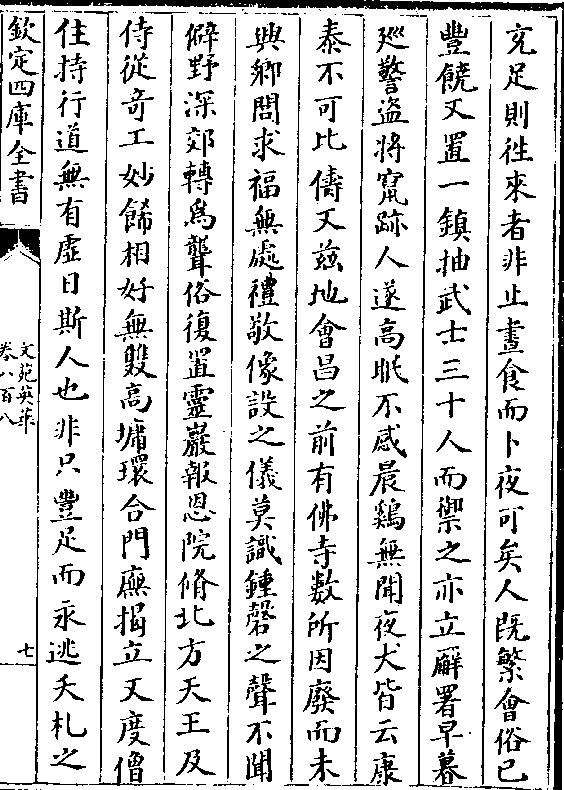 充足則徃來者非止晝食而卜夜可矣人既繁會俗已
豐饒又置一鎮抽武士三十人而禦之亦立廨署早暮
廵警盗將竄跡人遂高眠不惑晨鷄無聞夜犬皆云康
泰不可比儔又兹地會昌之前有佛寺數所因廢而未
興鄉閭求福無處禮敬像設之儀莫識鍾磬之聲不聞
僻野深郊轉爲聾俗復置靈巖報恩院脩北方天王及
侍從奇工妙餙相好無雙高墉環合門廡揭立又度僧
住持行道無有虚日斯人也非只豐足而永逃夭札之
欽定四庫全書
文苑英華
卷八百八
七